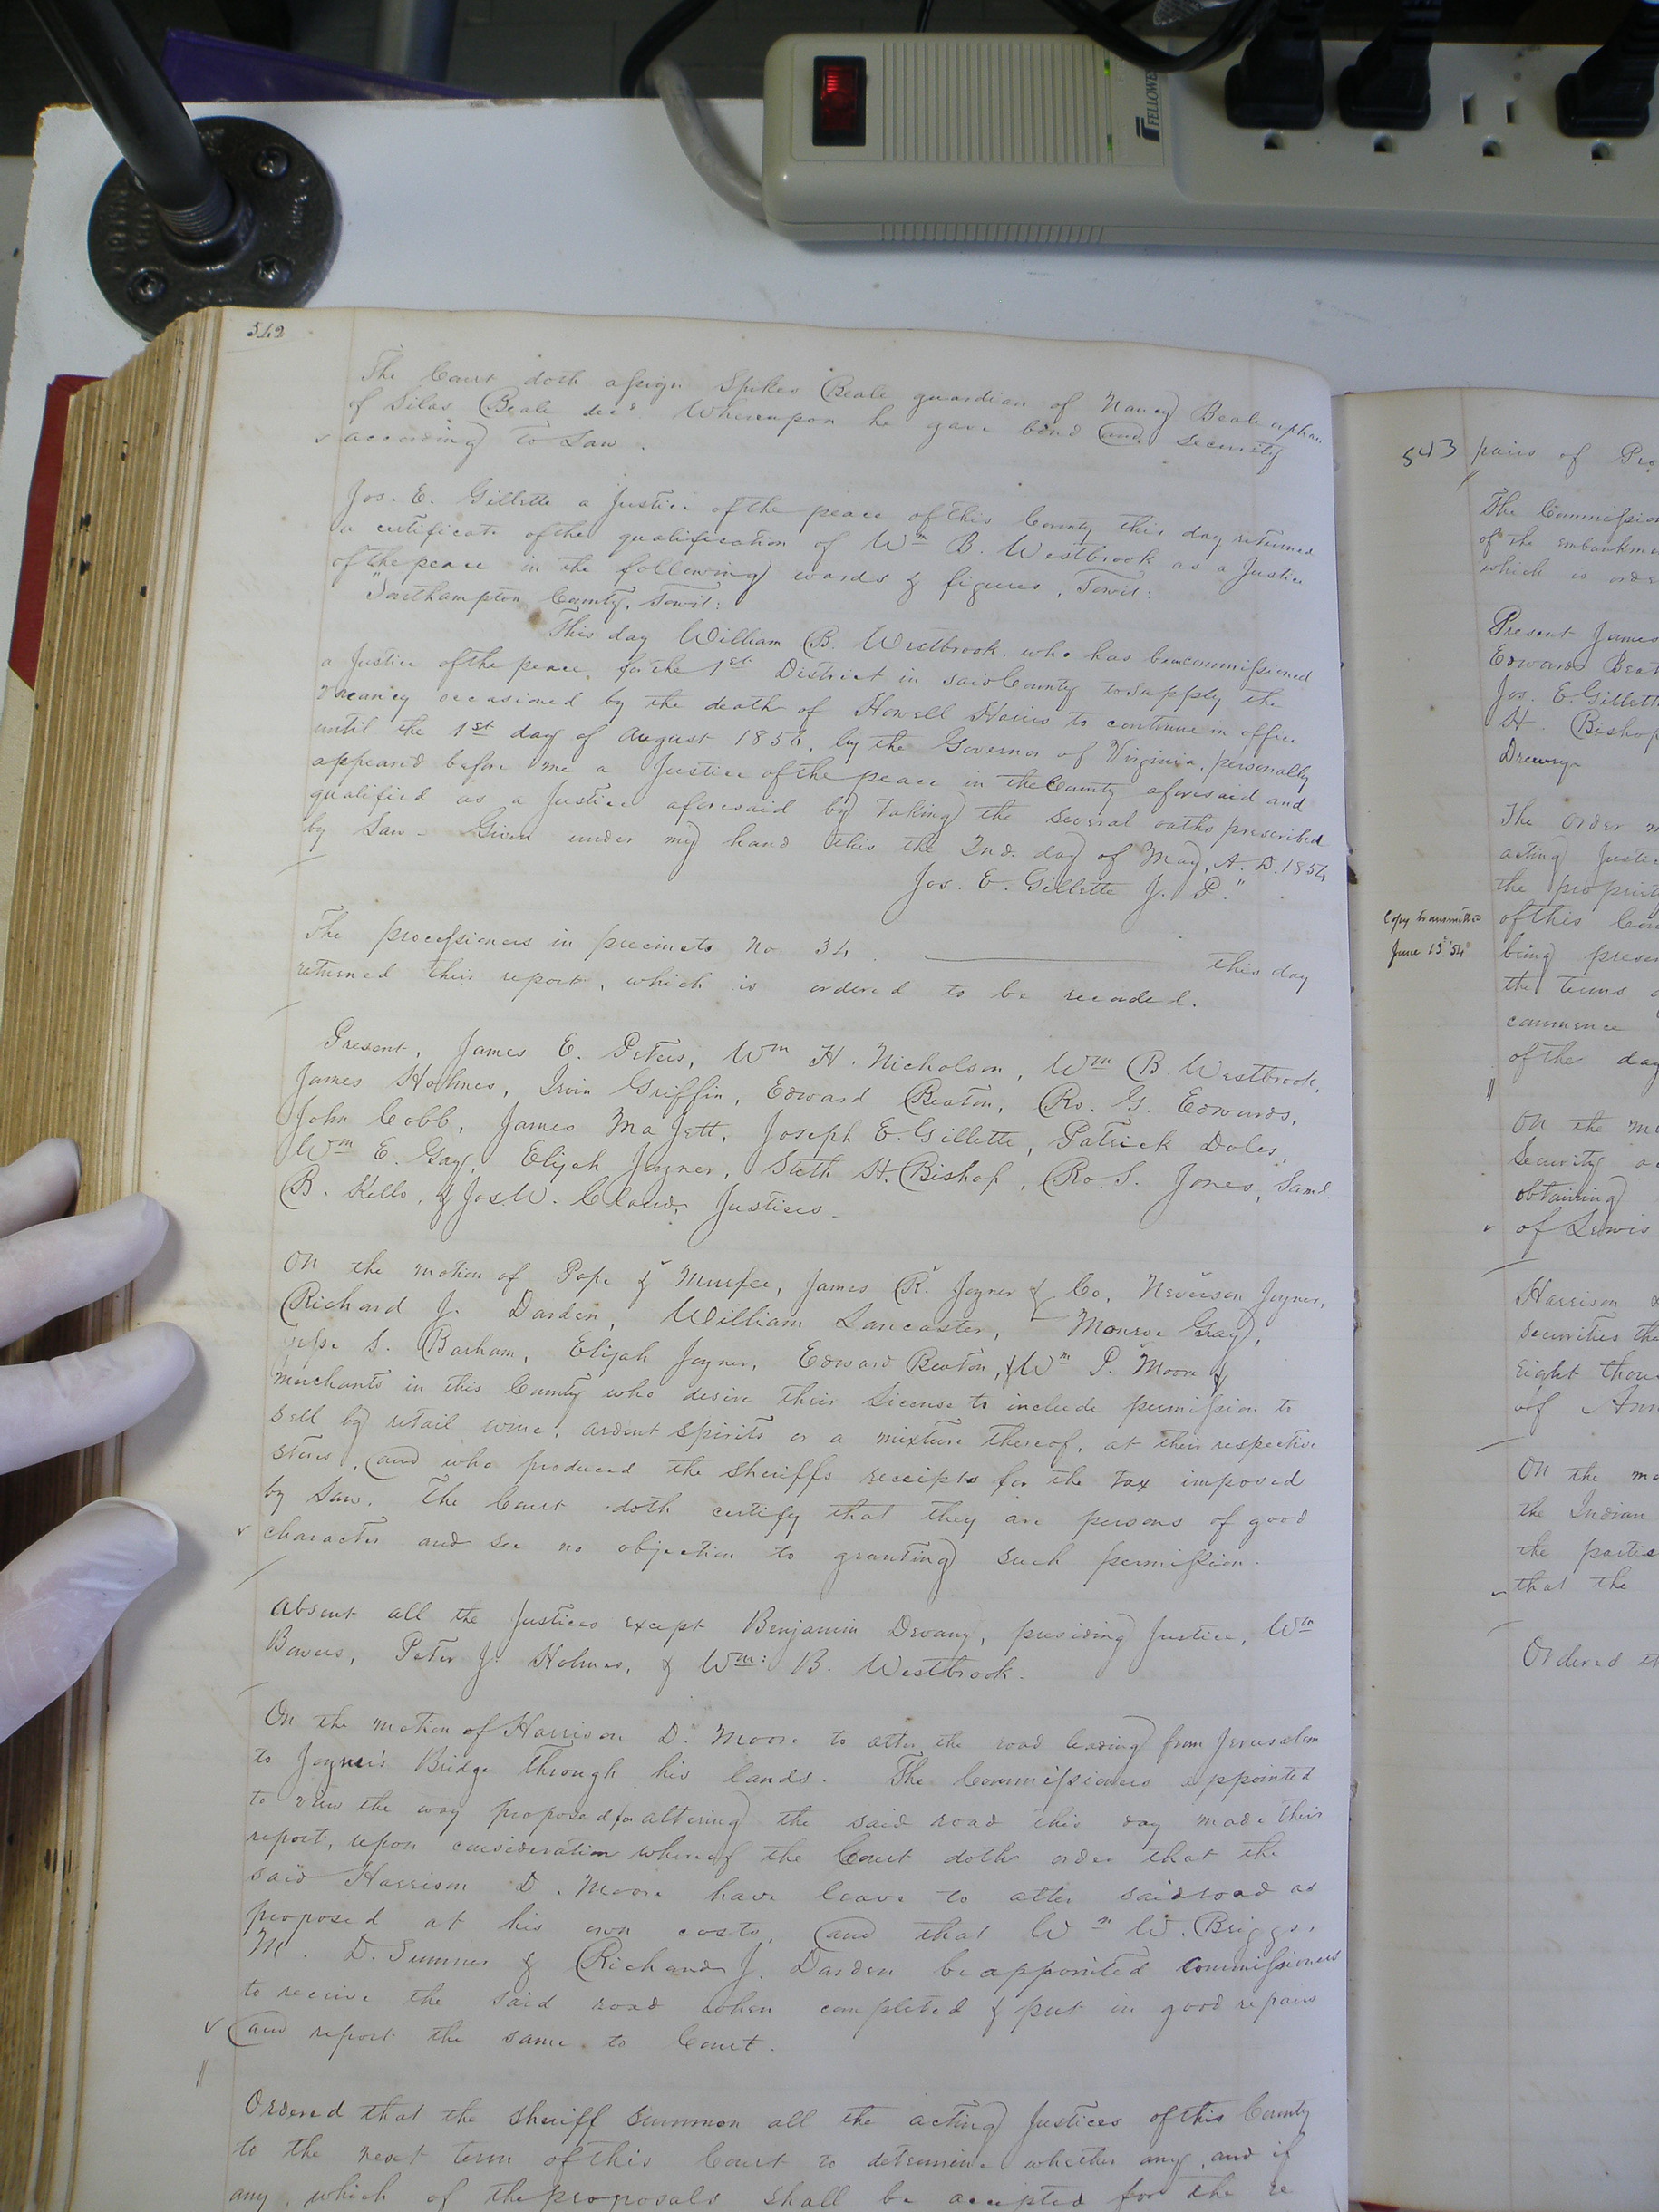 FELLOWES
542
The Court doth assign Spikes Beale guardian of Nancy Beale orphan
of Silas Beale decd. Whereupon he gave bond and security
according to Law.
Jos. E. Gillette a Justice of the peace of this County this day returned
a certificate of the qualification of Wm B. Westbrook as a Justice
of the peace in the following words & figures, Towit:
"Southampton County, Towit:
This day William B. Westbrook, who has been commissioned
a Justice of the peace for the 1st District in said County to supply the
vacancy occasioned by the death of Howell Harris to continue in office
until the 1st day of August 1854, by the Governor of Virginia, personally
appeared before me a Justice of the peace in the County aforesaid and
qualified as a Justice aforesaid by taking the several oaths prescribed
by Law. Given under my hand this the 2nd. day of May, A.D. 1854
Jos. E. Gillette J. P."
The processioners in precincts No. 34. this day
returned their report, which is ordered to be recorded.
Present, James E. Peters, Wm H. Nicholson, Wm B. Westbrook,
James Holmes, Irvin Griffin, Edward Beaton, Ro. G. Edwards,
John Cobb, James Majett, Joseph E. Gillette, Patrick Doles,
Wm E. Gay, Elijah Joyner, Sieth H. Bishop, Ro. S. Jones, Saml.
B. Kello, & Jos. W. Claud, Justices.
On the motion of Pope & Murfee, James R. Joyner & Co, Neverson Joyner,
Richard J. Darden, William Lancaster, Monroe Gray,
Jesse S. Barham, Elijah Joyner, Edward Beaton, & Wm P. Moore &
merchants in this County who desire their License to include permission to
sell by retail wine, ardent spirits or a mixture thereof, at their respective
stores, and who produced the sheriffs receipts for the tax imposed
by Law. The Court doth certify that they are persons of good
character and see no objection to granting such permission.
Absent all the Justices except Benjamin Devany, presiding Justice, Wm
Bowers, Peter J. Holmes, & Wm: B. Westbrook.
On the motion of Harrison D. Moore to alter the road leading from Jerusalem
to Joyner's Bridge through his lands. The Commissioners appointed
to view the way proposed for altering the said road this day made their
report, upon consideration whereof the Court doth order that the
said Harrison D. Moore have leave to alter said road as
proposed at his own costs, and that Wm W. Briggs,
M. D. Sumner & Richard J. Darden be appointed commissioners
to receive the said road when completed & put in good repairs
and report the same to Court.
Ordered that the sheriff summon all the acting Justices of this County
to the next term of this Court to determine whether any, and if
any, which of the proposals shall be accepted for the re
543
pairs of Pro
The Commission
of the embankme
which is orde
Present James
Edward Beat
Jos. E. Gillett
H. Bishop
Drewry
The order m
acting Justic
the propriety
Copy transmitted
of this Cou
June 15. '54
being presen
the terms o
commence
of the day
On the mo
security o
obtaining
of Lewis
Harrison
securities the
eight thou
of Ann
On the mo
the Indian
the partie
that the
Ordered th